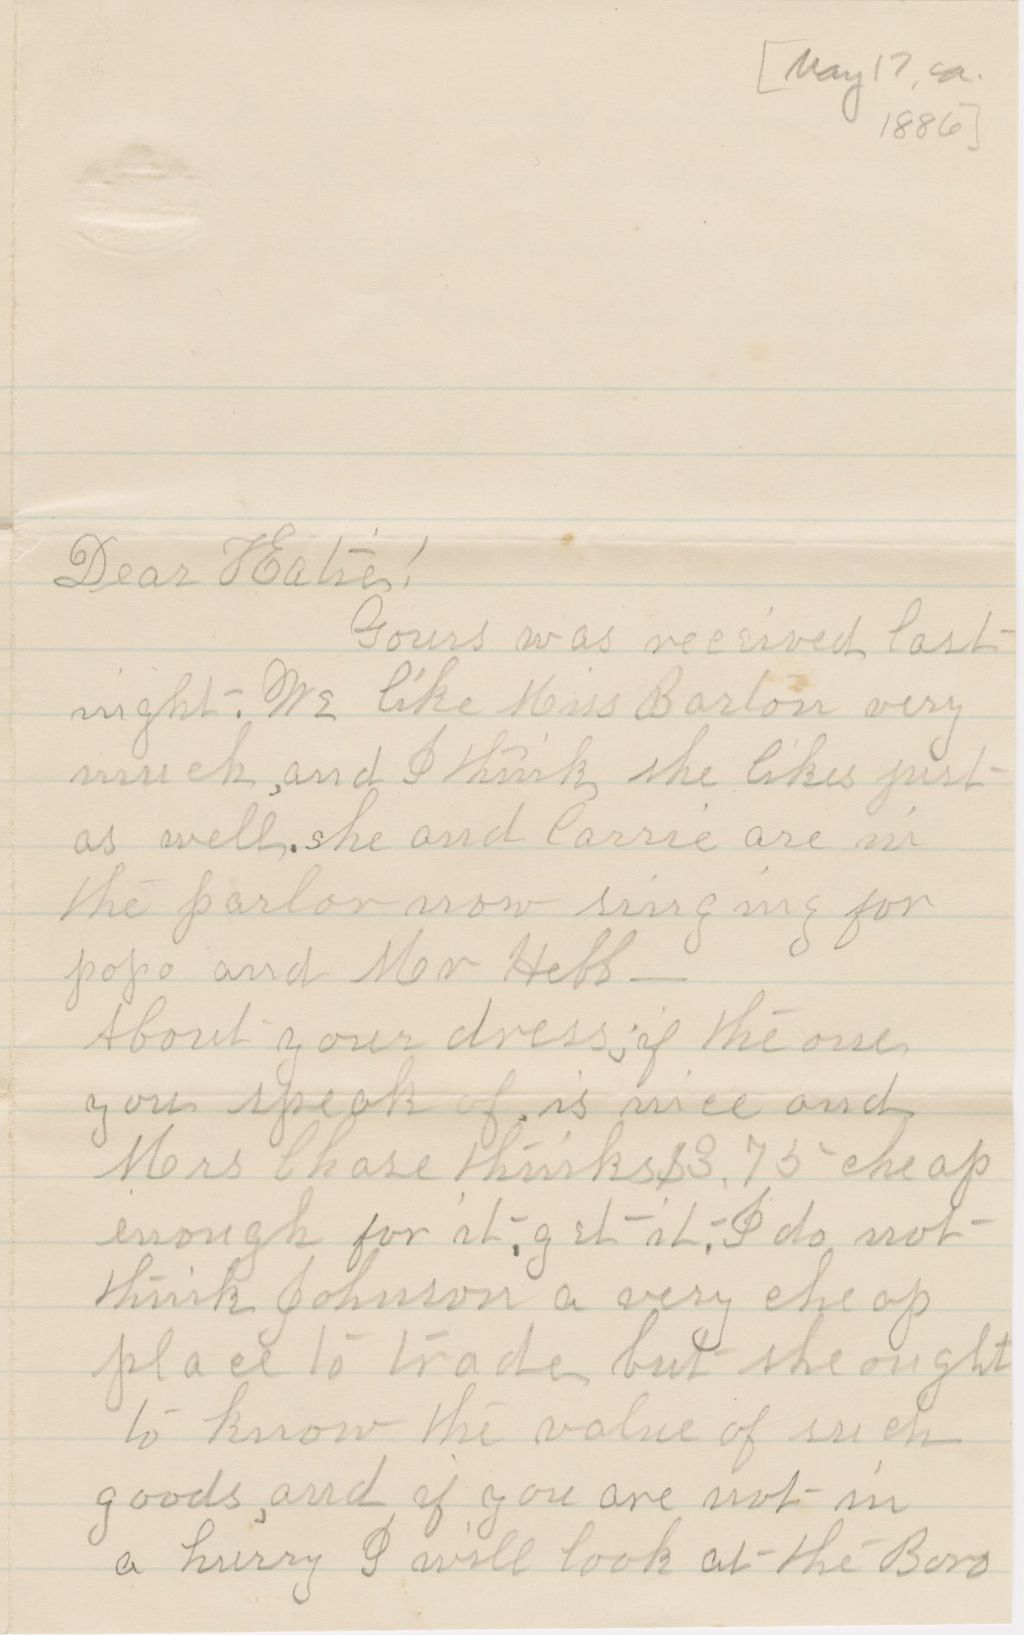 [May 17, ca.
1886]
Dear Hatie!
Yours was received last
night. We like Miss Barton very
much, and I think she likes just
as well. she and Carrie are in
the parlor now singing for
papa and Mr Hebb—
About your dress; if the one
you speak of, is nice and
Mrs Chase thinks $3.75 cheap
enough for it, get it; I do not
think Johnson a very cheap
place to trade but she ought
to know the value of such
goods, and if you are not in
a hurry I will look at the Boro